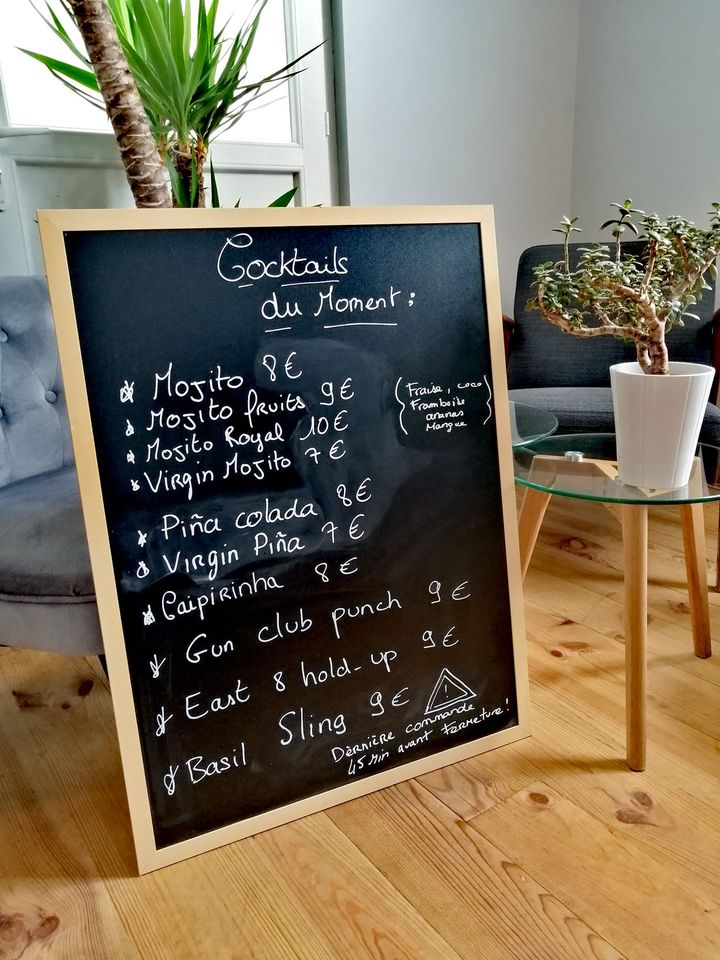 Cocktails
du Moment :
Mojito 8€
Mojito fruits 9€
(Fraise, coco
Framboise
ananas
Mangue)
Mojito Royal 10€
Virgin Mojito 7€
Piña colada 8€
Virgin Piña 7€
Caipirinha 8€
Gun club punch 9€
East 8 hold-up 9€
Basil Sling 9€
!
Dernière commande
45 Min avant Fermeture !